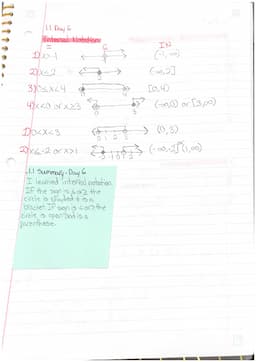 1.1 Day 6
Interval Notation
= G IN
1) x>-1 (-1,∞)
2) x≤2 (-∞,2]
3) 0≤x<4 [0,4)
4) x<0 or x≥3 (-∞,0) or [3,∞)
1) 0<x<3 (0,3)
2) x≤-2 or x>1 (-∞,-2] (1,∞)
1.1 Summary - Day 6
I learned interval notation.
IF the sign is ≤ or ≥ the
circle is shaded & it is a
bracket. IF sign is < or > the
circle is open and is a
parenthese.